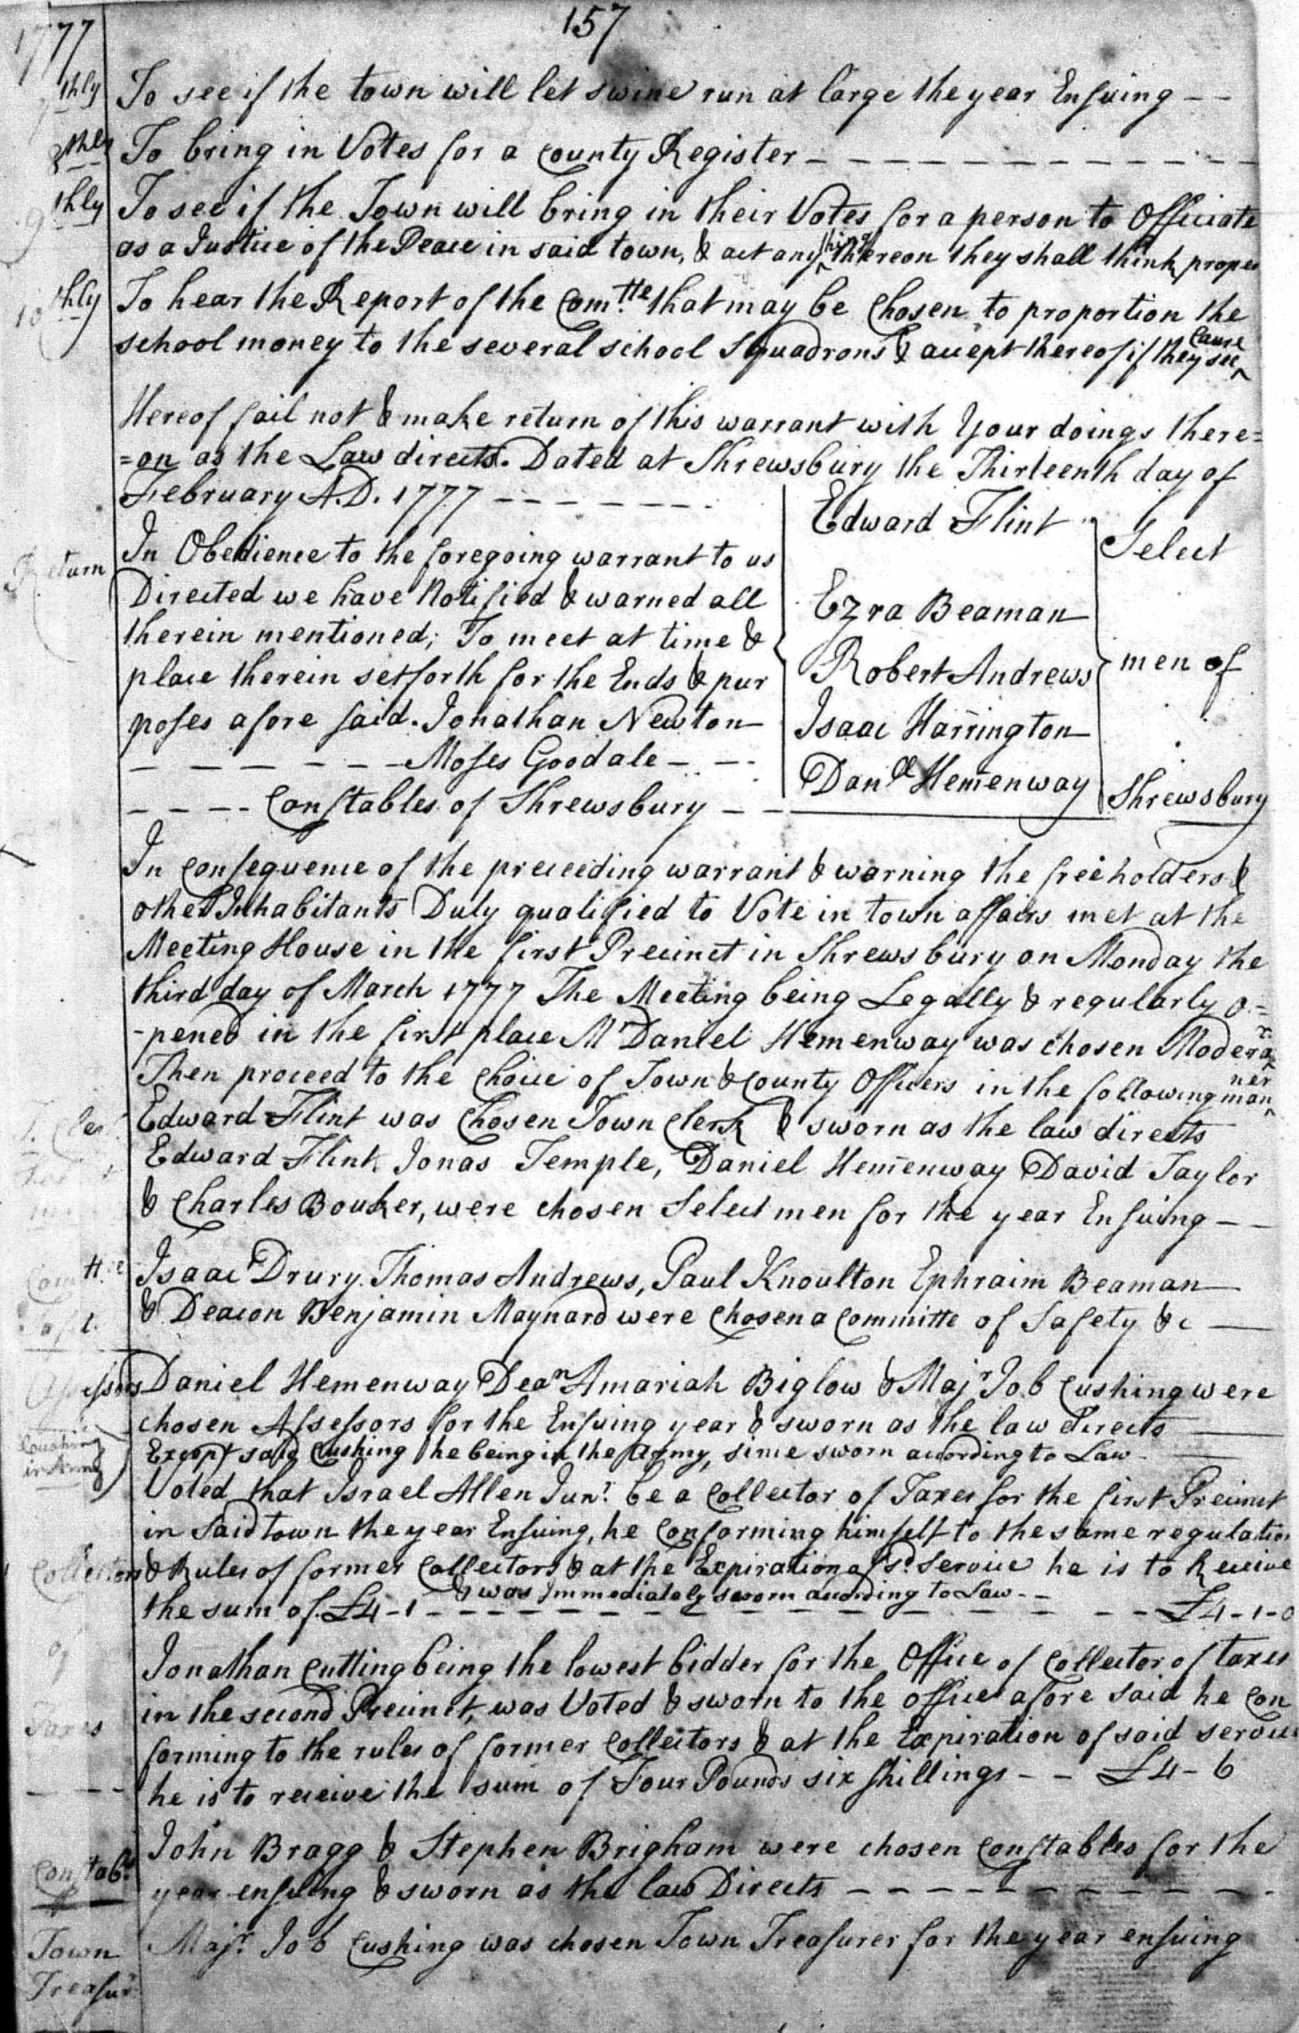 157
1777
7thly To see if the town will let swine run at large the year Ensuing
8thly To bring in Votes for a county Register
9thly To see if the Town will bring in their Votes for a person to Officiate
as a Justice of the Peace in said town, & act any thing thereon they shall think proper
10thly To hear the Report of the Comtte that may be Chosen to proportion the
school money to the several school Squadrons & accept thereof if they see Cause
Hereof fail not & make return of this warrant with Your doings there=
=on as the Law directs. Dated at Shrewsbury the Thirteenth day of
February A.D. 1777
Edward Flint
Ezra Beaman
Robert Andrews
Isaac Harrington
Danll Hemenway
Select
men of
Shrewsbury
Return
In Obedience to the foregoing warrant to us
Directed we have Notified & warned all
therein mentioned; To meet at time &
place therein setforth for the Ends & pur
poses afore said. Jonathan Newton
Moses Goodale
Constables of Shrewsbury
In consequence of the preceeding warrant & warning the freeholders &
other Inhabitants Duly qualified to Vote in town affairs met at the
Meeting House in the first Precinct in Shrewsbury on Monday the
third day of March 1777 The Meeting being Legally & regularly o=
-pened in the first place Mr Daniel Hemenway was chosen Moderar
Then proceed to the Choice of Town & County Officers in the following manner
T. Cler
Edward Flint was Chosen Town Clerk & sworn as the law directs
Edward Flint Jonas Temple, Daniel Hemenway David Taylor
& Charles Bouker, were chosen Select men for the year Ensuing
Comtte
Isaac Drury. Thomas Andrews, Paul Knoulton Ephraim Beaman
& Deacon Benjamin Maynard were Chosen a Committe of Safety &c
Assessors
Daniel Hemenway Dean Amariah Biglow & Majr Job Cushing were
chosen Assessors for the Ensuing year & sworn as the law directs
Cushing
in Army
Except said Cushing he being in the Army, since sworn acording to Law
Voted that Israel Allen Junr. be a Collector of Taxes for the first Precinct
in Said town the year Ensuing, he Conforming himself to the same regulation
Collectors
of
Taxes
& Rules of former Collectors & at the Expiration of sd. Service he is to Receive
& was Immediately sworn acording to Law
the sum of £4-1 £4-1-0
Jonathan Cutting being the lowest bidder for the Office of Collector of taxes
in the second Precinct, was Voted & sworn to the office afore said he Con
forming to the rules of former Collectors & at the Expiration of said service
he is to receive the sum of Four Pounds six shillings £4-6
Constabs
John Bragg & Stephen Brigham were chosen Constables for the
year ensuing & sworn as the law Directs
Town
Treasur
Majr. Job Cushing was chosen Town Treasurer for the year ensuing